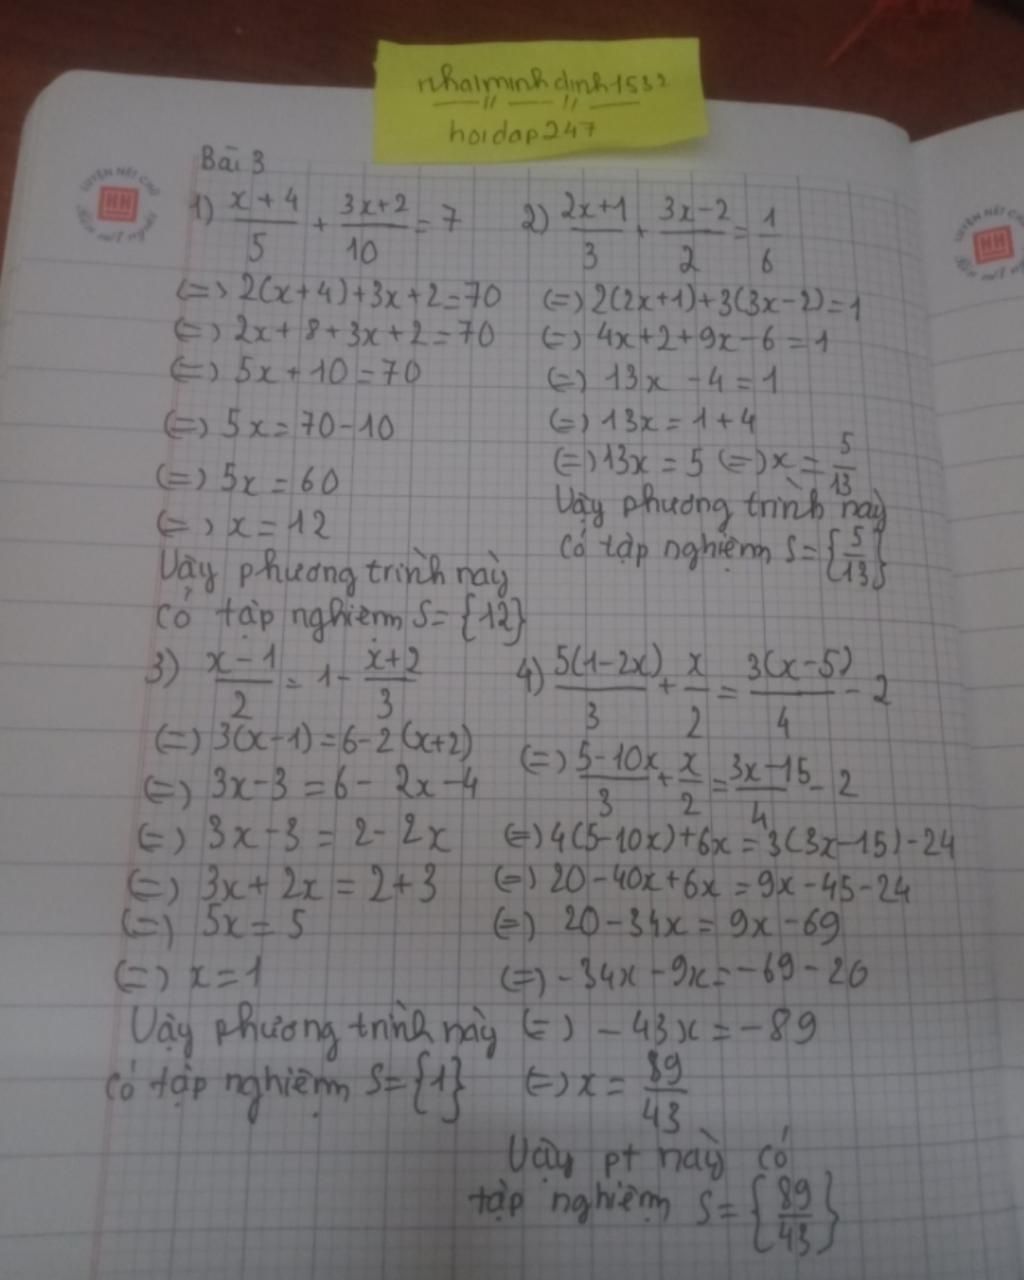 nhalminhdinh1532
hoidap247
Bài 3
1) \frac{x+4}{5} + \frac{3x+2}{10} = 7
(=) 2(x+4)+3x+2=70
(=) 2x+8+3x+2=70
(=) 5x+10=70
(=) 5x=70-10
(=) 5x=60
(=) x=12
Vậy phương trình này
có tập nghiệm S={12}
2) \frac{2x+1}{3} + \frac{3x-2}{2} = \frac{1}{6}
(=) 2(2x+1)+3(3x-2)=1
(=) 4x+2+9x-6=1
(=) 13x-4=1
(=) 13x=1+4
(=) 13x=5 (=) x=\frac{5}{13}
Vậy phương trình này
có tập nghiệm S={\frac{5}{13}}
3) \frac{x-1}{2} = 1-\frac{x+2}{3}
(=) 3(x-1)=6-2(x+2)
(=) 3x-3=6-2x-4
(=) 3x-3=2-2x
(=) 3x+2x=2+3
(=) 5x=5
(=) x=1
Vậy phương trình này
có tập nghiệm S={1}
4) \frac{5(1-2x)}{3} + \frac{x}{2} = \frac{3(x-5)}{4} - 2
(=) \frac{5-10x}{3} + \frac{x}{2} = \frac{3x-15}{4} - 2
(=) 4(5-10x)+6x=3(3x-15)-24
(=) 20-40x+6x=9x-45-24
(=) 20-34x=9x-69
(=) -34x-9x=-69-20
(=) -43x=-89
(=) x=\frac{89}{43}
Vậy pt này có
tập nghiệm S={\frac{89}{43}}
LUYỆN NÉT CHỮ
HH
Rèn nết người
LUYỆN NÉT CH
HH